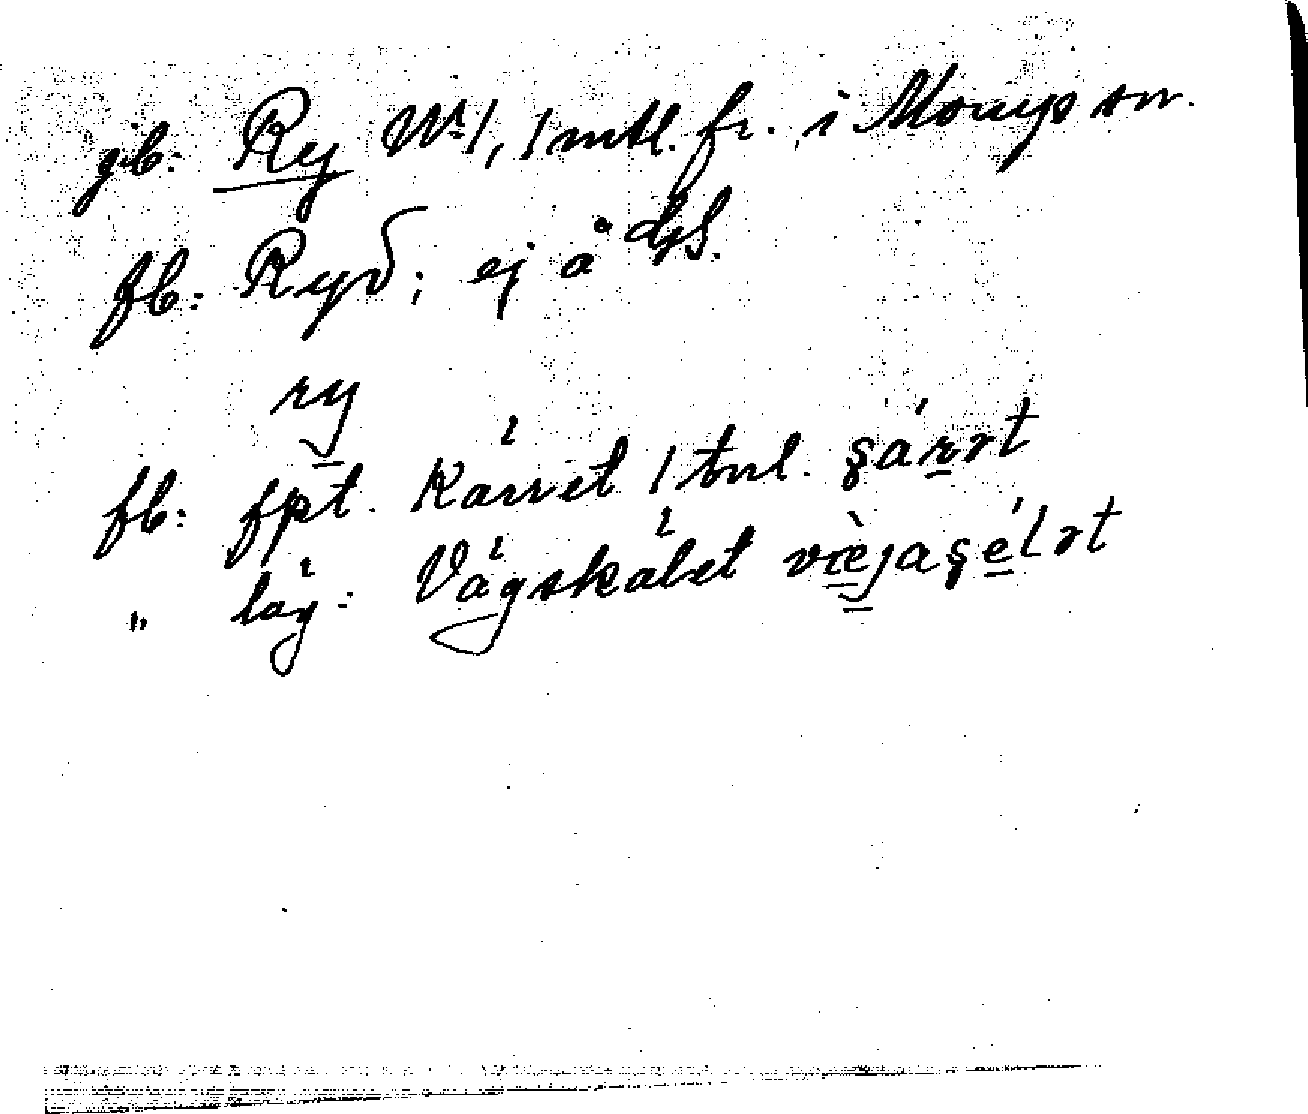 gb: Ry Nr 1, 1 mtl. fr. i Morups sn.
fb: Ryd; ej å dgS.
ry
fb: fpt. Kärret 1 tnl. ʂárɪt
" läg: Vägskälet vɛ̀jaʂélɪt